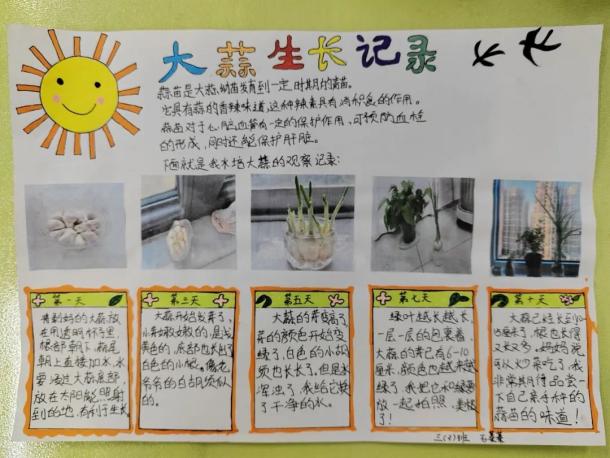 大蒜生长记录
蒜苗是大蒜幼苗发育到一定时期的青苗。
它具有蒜的香辣味道,这种辣素具有消积食的作用。
蒜苗对于心脏血管有一定的保护作用,可预防血栓
的形成,同时还能保护肝脏。
下面就是我水培大蒜的观察记录:
第一天
大蒜放
在透明杯子里,
根部朝下,蒜尖
朝上直接加水,水
要没过大蒜底部,
放在太阳能照射
到的地,有利于生长
第三天
大蒜开始发芽了,
小芽嫩嫩的,是浅
黄色的,底部也长出了
白色的小根,像老
爷爷的白胡须似
的。
第五天
大蒜的芽长高了,
芽的颜色开始变
绿了,白色的小胡
须也长长了,但是水
浑浊了,我给它换
了干净的水。
第七天
绿叶越长越长,
一层一层的包裹着,
大蒜的芽已有6-10
厘米,颜色也越来越
绿了,我把它和绿萝
放一起拍照,美极
了!
第十天
大蒜已经长到
厘米了,根也长得
又长又多,妈妈说
可以炒菜吃了,我
非常期待品尝一
下自己亲手种的
蒜苗的味道!
三(3)班